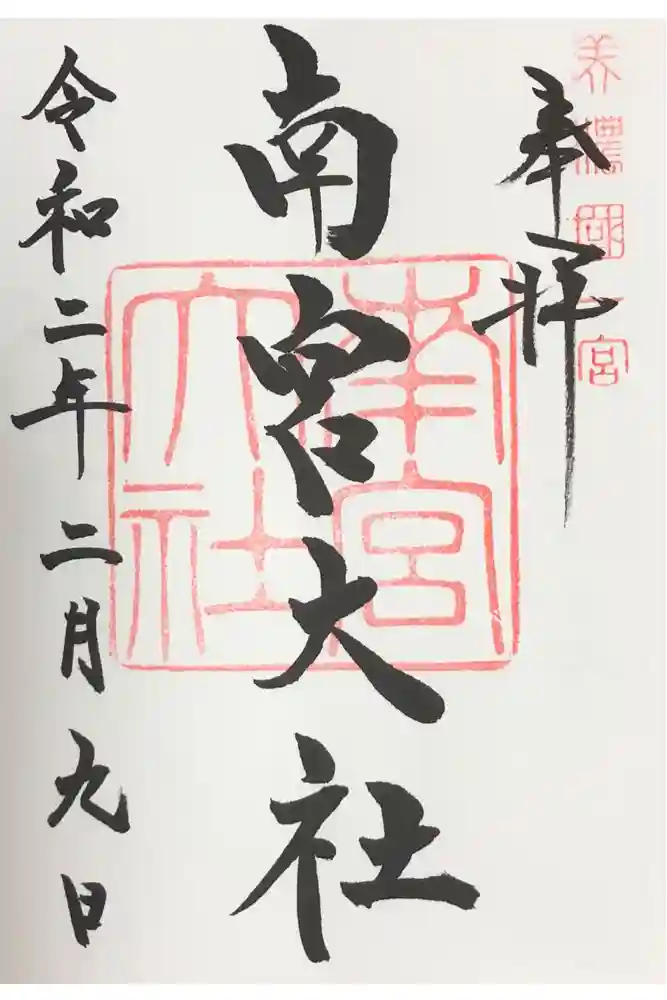 奉拝
美濃國一宮
南宮大社
南宮大社
令和二年二月九日